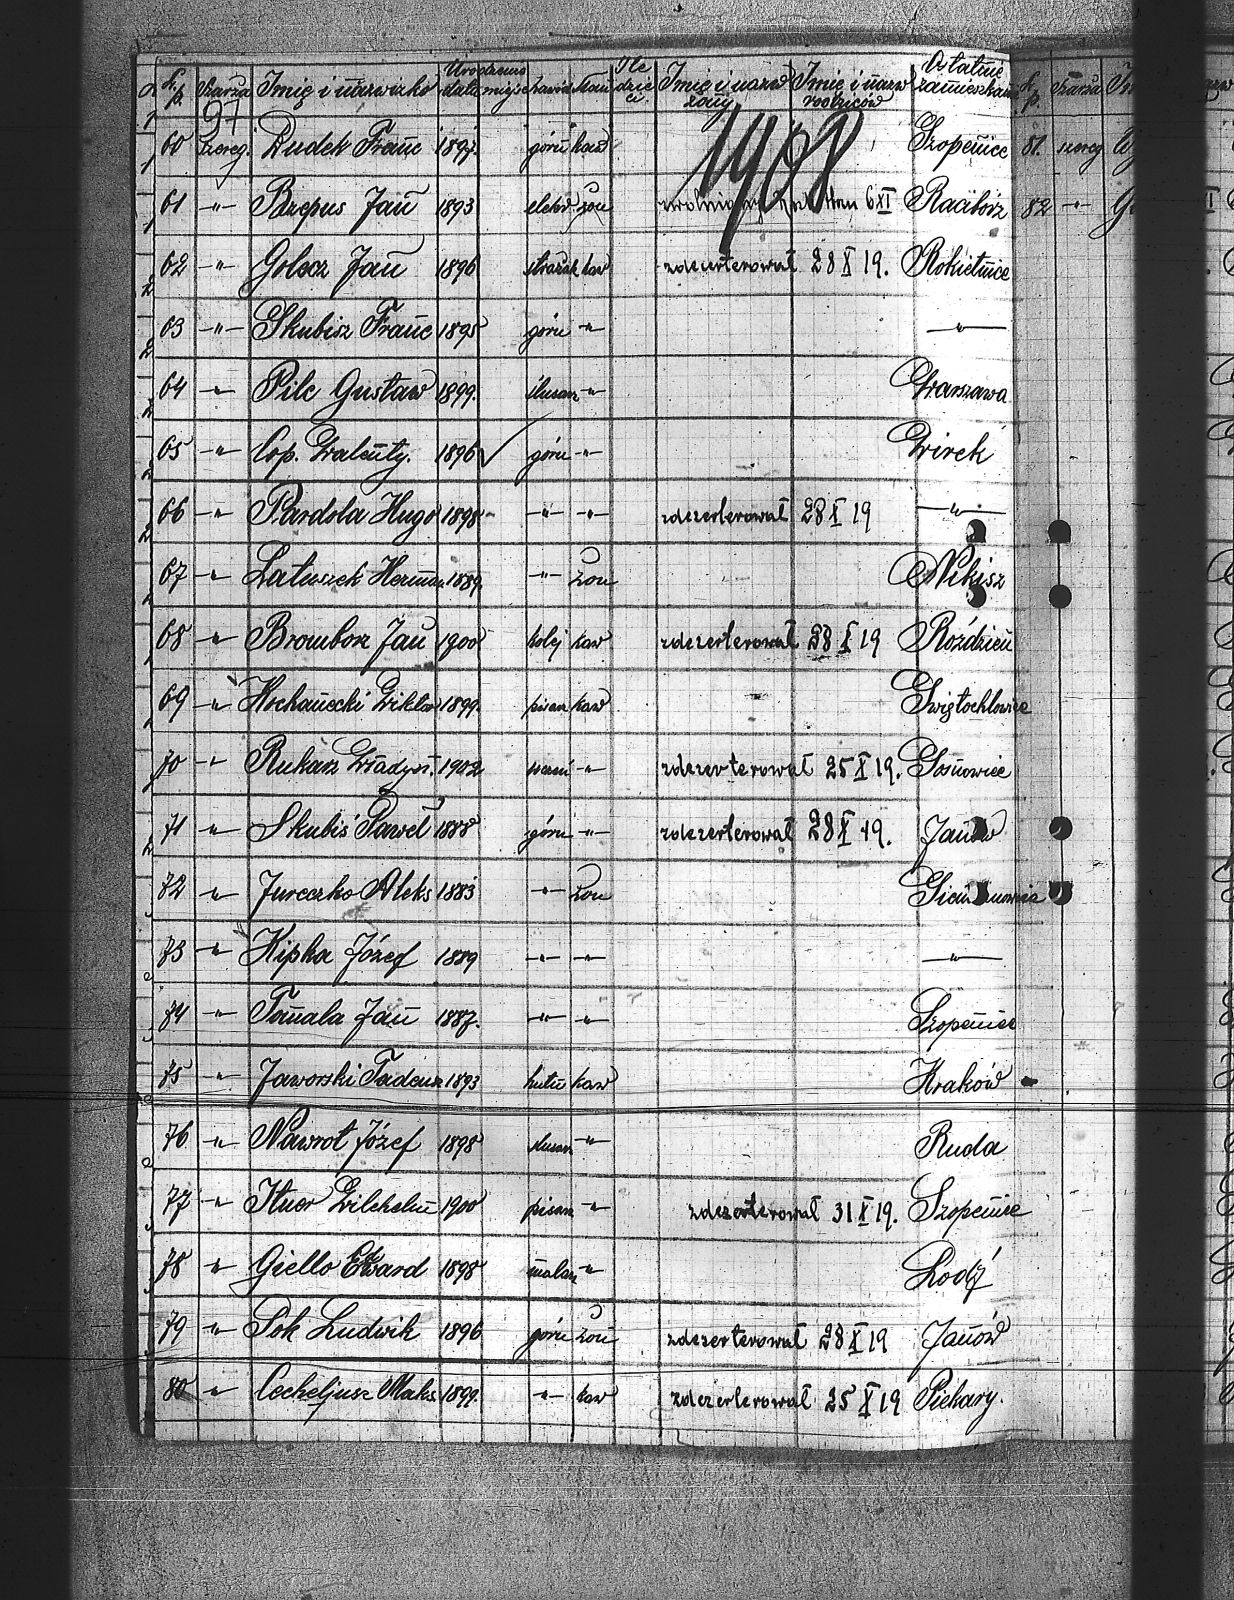 L. p. Szarża Imię i nazwizko Urodzenia data miejsc Zawód Stan Ile dzieci Imię i nazw żony Imię i nazw rodziców Ostatnie zamieszkan
97 1908
60 szereg. Dudek Franc 1897. górn kaw Szopenice
61 -"- Bzepus Jan 1893 elektr żon 6 XI Racibórz
62 -"- Golecz Jan 1896 kaw zdezerterował 28 X 19. Rokietnice
63 -"- Skubisz Franc 1895 górn -"- -"-
64 -"- Pilc Gustaw 1899. ślusarz -"- Warszawa
65 -"- Cop. Walenty. 1896 górn -"- Wirek
66 -"- Pardola Hugo 1898 -"- -"- zdezerterował 28 X 19 -"-
67 -"- Latuszek Herman 1889. -"- żon Nikisz
68 -"- Brombosz Jan 1900 kolej kaw zdezerterował 28 X 19 Roździeń
69 -"- Kochanecki Wiktor 1899. pisarz kaw Świętochłowice
70 -"- Rukasz Władysł. 1902 -"- zdezerterował 25 X 19. Sosnowiec
71 -"- Skubiś Paweł 1888 górn -"- zdezerterował 28 X 19. Janów
72 -"- Jureczko Aleks 1883 -"- żon
73 -"- Kipka Józef 1889 -"- -"- -"-
74 -"- Tomala Jan 1887. -"- -"- Szopenice
75 -"- Jaworski Tadeusz 1893 hutn kaw Kraków
76 -"- Nawrot Józef 1898 ślusarz -"- Ruda
77 -"- Wilchelm 1900 pisarz -"- zdezerterował 31 X 19. Szopenice
78 -"- Giello Edward 1898 malarz -"- Łodź
79 -"- Sok Ludwik 1896 górn żon zdezerterował 28 X 19 Janów
80 -"- Cecheljusz Maks. 1899. -"- kaw zdezerterował 25 X 19 Piekary.
L. p. Szarża
81. szereg
82 -"-